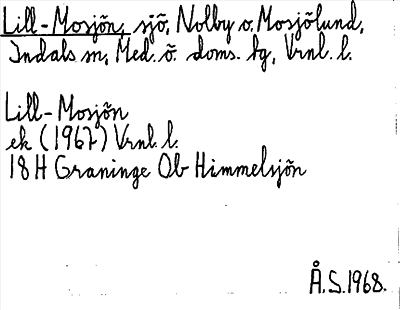 Lill-Mosjön, sjö, Nolby o. Mosjölund,
Indals sn, Med. ö. doms. tg, Vrnl. l.
Lill-Mosjön
ek (1967) Vrnl. l.
18H Graninge Ob Himmelsjön
Å.S.1968.